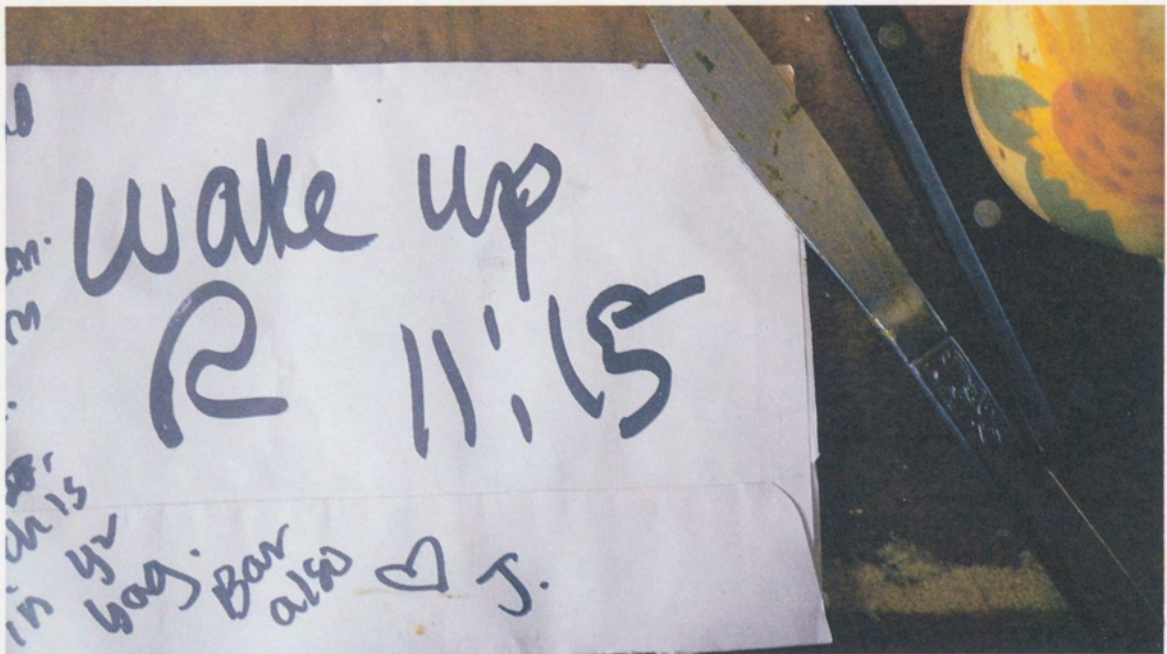 wake up
R 11:15
is
in yr
bag. Bar
also ♡ J.